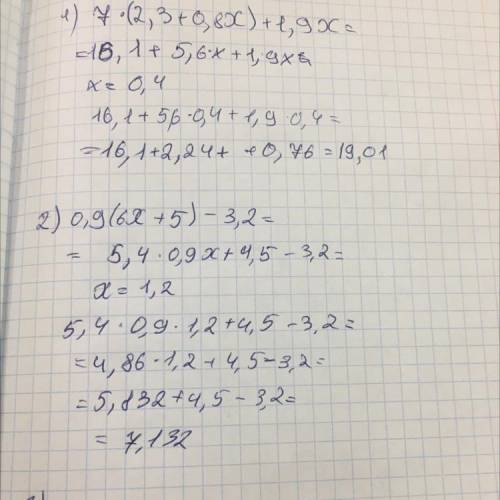 1) 7·(2,3+0,8x)+1,9x=
=16,1+5,6·x+1,9x=
x=0,4
16,1+5,6·0,4+1,9·0,4=
=16,1+2,24+ +0,76=19,01
2) 0,9(6x+5)-3,2=
= 5,4·0,9x+4,5-3,2=
x=1,2
5,4·0,9·1,2+4,5-3,2=
=4,86·1,2+4,5-3,2=
=5,832+4,5-3,2=
= 7,132